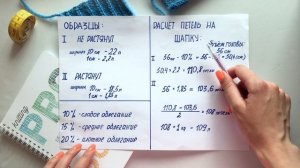 ОБРАЗЦЫ:
I НЕ РАСТЯНУТ
ширина 10 см - 22 п
1 см - 2,2 п
II РАСТЯНУТ
ширина 10 см - 18,5 п
1 см - 1,85 п
10% - слабое облегание
15% - среднее облегание
20% - плотное облегание
РАСЧЕТ ПЕТЕЛЬ НА
ШАПКУ:
Объём головы
56 см
I 56 см - 10% = 50,4 см
50,4 × 2,2 = 110,8
II 56 × 1,85 = 103,6
110,8 + 103,6
2
108 + 1 кр = 109 п
PRO